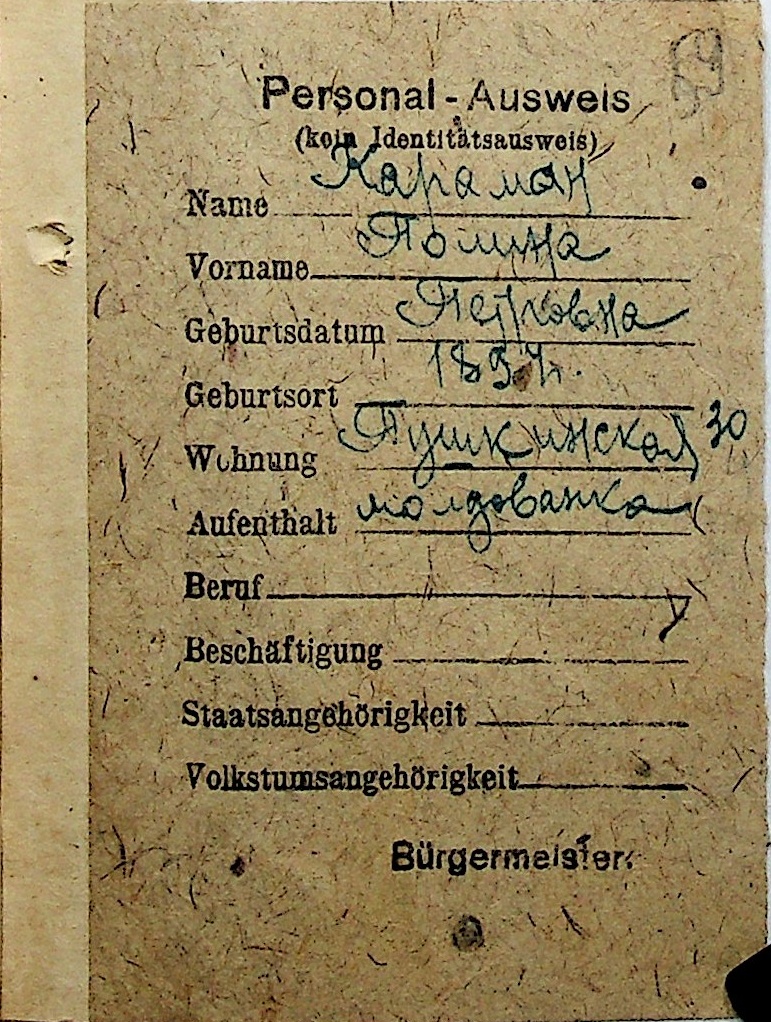 Personal - Ausweis
(kein Identitätsausweis)
Name Караман
Vorname Полина
Geburtsdatum Петровна
Geburtsort 1897г.
Wohnung Пушкинская 30
Aufenthalt молдованка
Beruf
Beschäftigung
Staatsangehörigkeit
Volkstumsangehörigkeit
Bürgermeister: